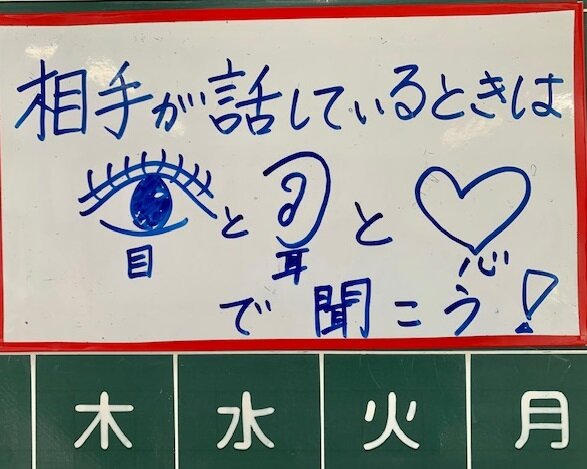 相手が話しているときは
と と
目 耳 心
で聞こう!
木 水 火 月